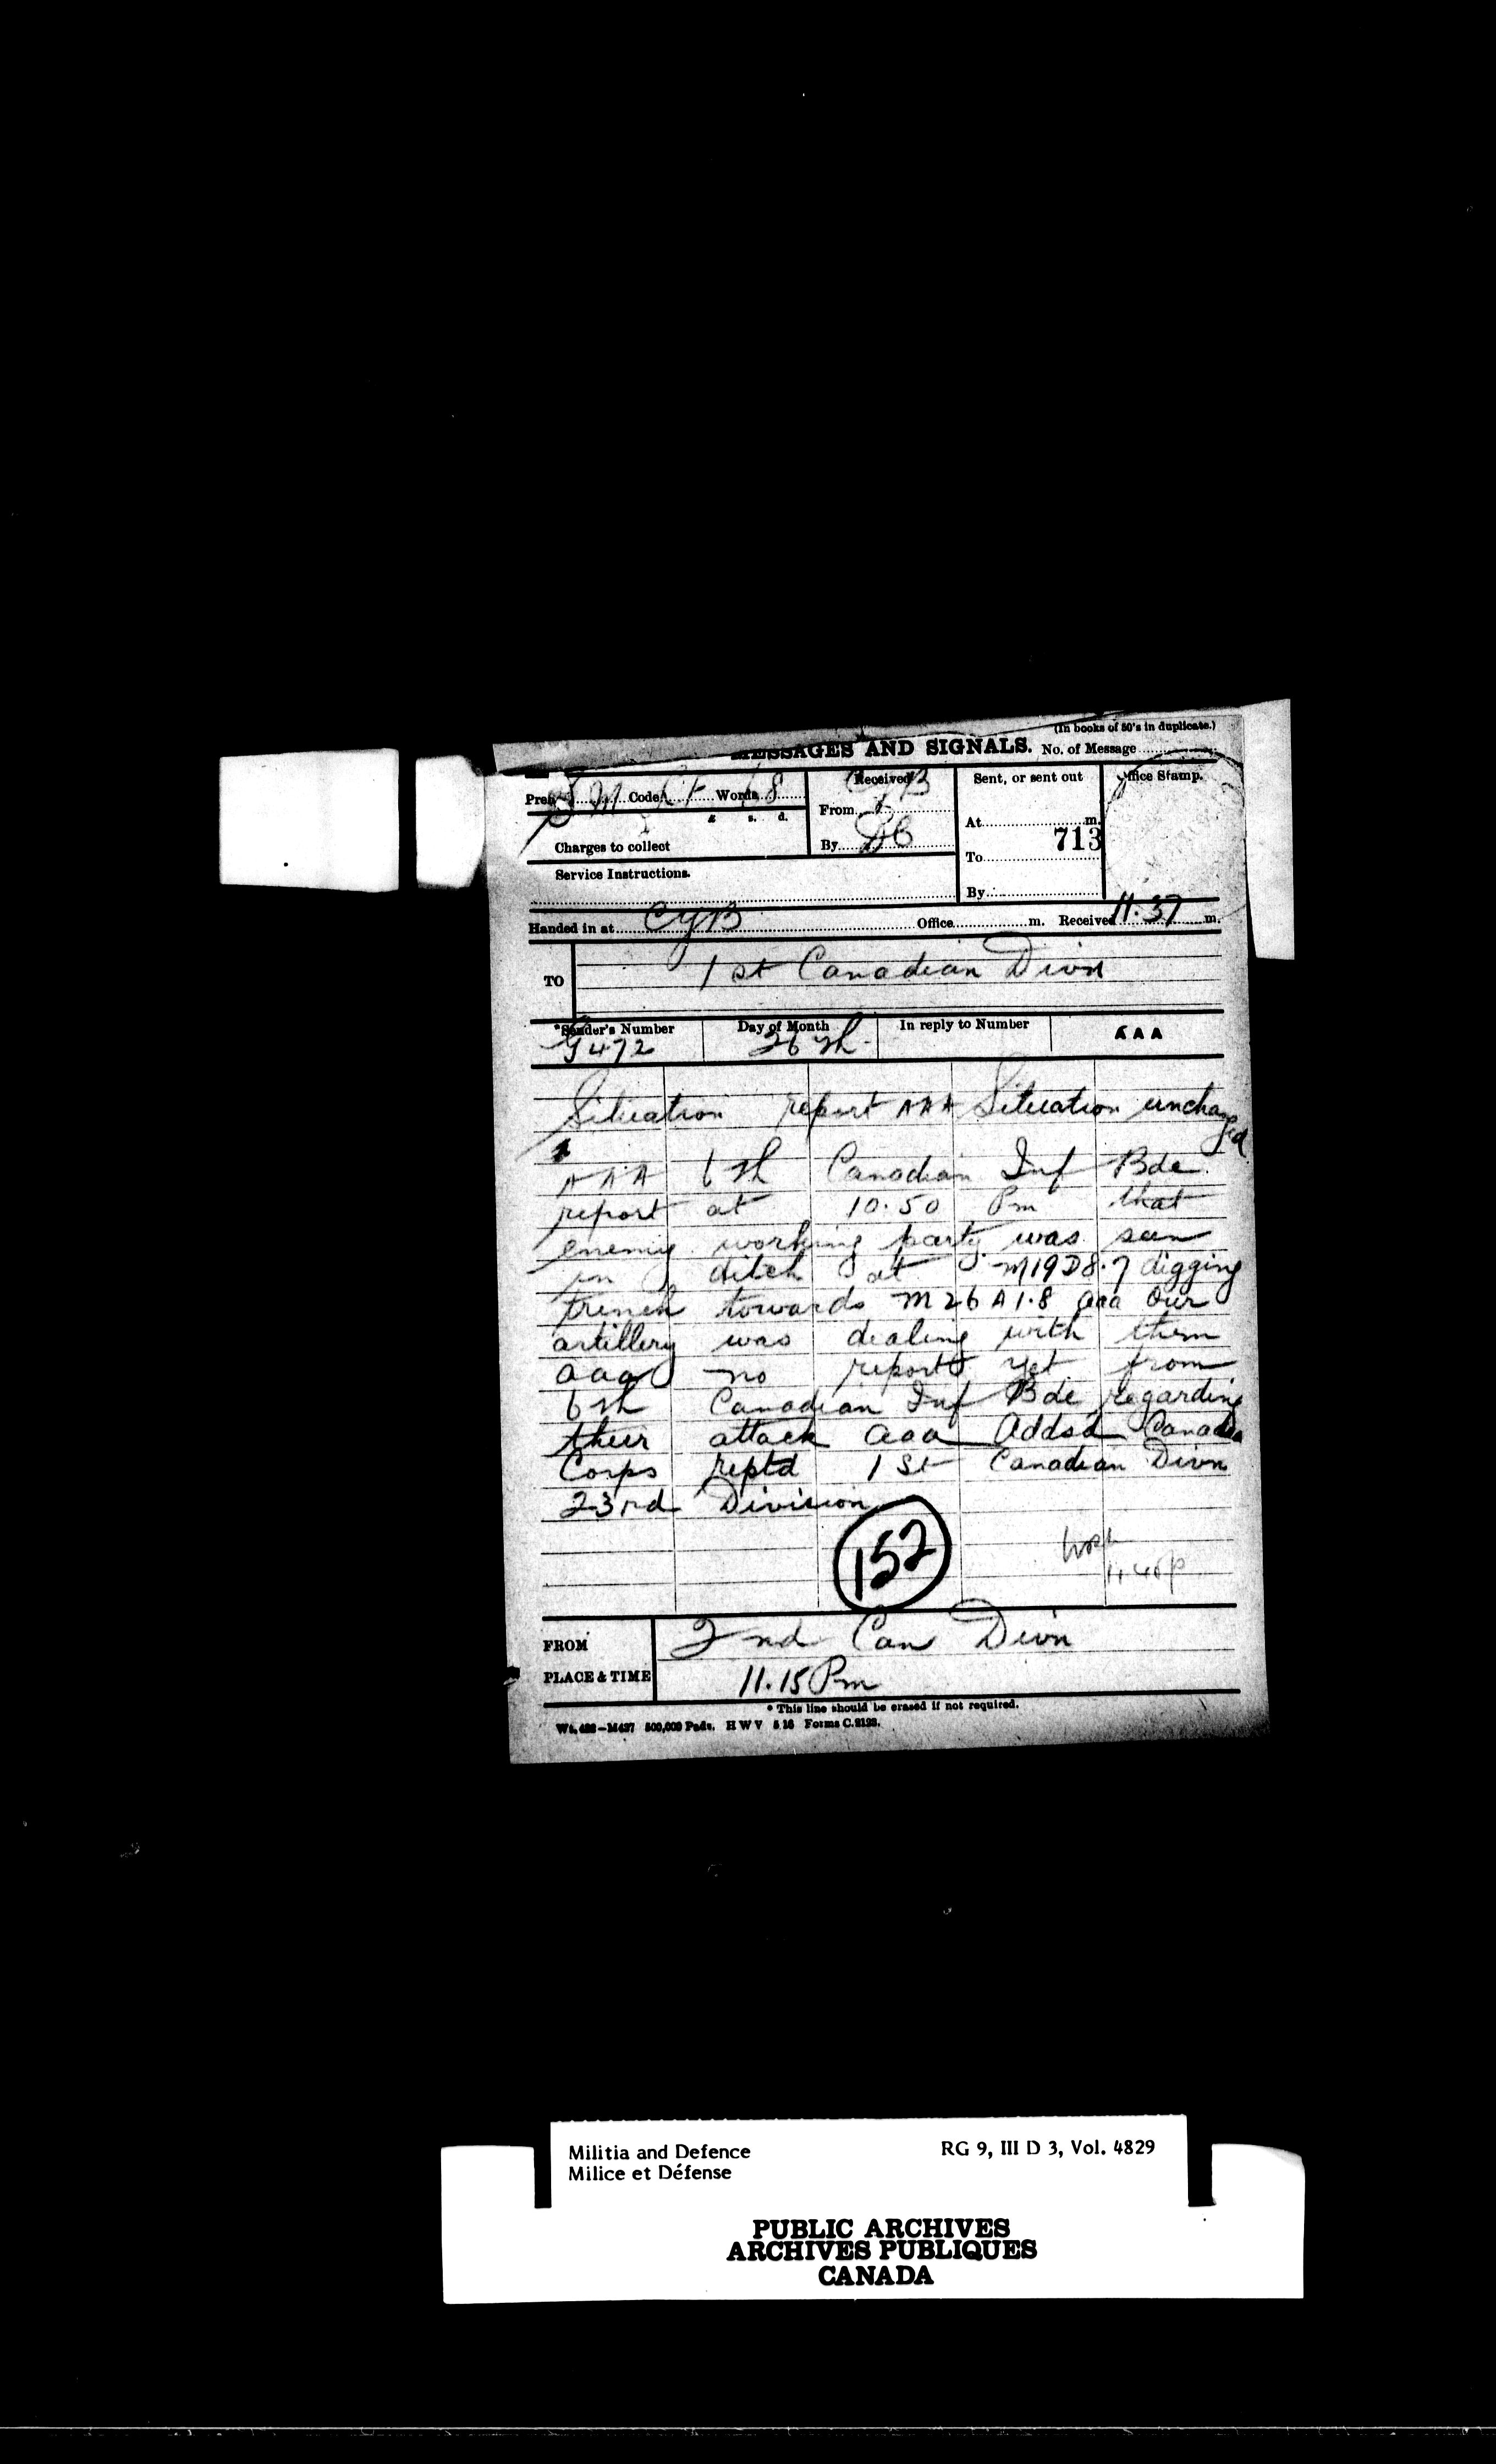 (In books of 50's in duplicate.)
MESSAGES AND SIGNALS. No. of Message
Prefix S M Code Words 68
Received
CYB
Sent, or sent out
Office Stamp.
£ s. d.
From
At m.
Charges to collect
By
713
To
Service Instructions.
By
Handed in at CYB Office m. Received 11.37 m.
TO 1st Canadian Divn
*Sender's Number Day of Month In reply to Number AAA
G 472 26th
Situation report AAA Situation unchanged
AAA 6th Canadian Inf Bde
report at 10.50 Pm that
enemy working party was seen
in ditch at M19D8.7 digging
trench towards M26A1.8 aaa Our
artillery was dealing with them
aaa no reports yet from
6th Canadian Inf Bde regarding
their attack aaa Addsd Canadian
Corps reptd 1st Canadian Divn
23rd Division
152
11.40p
FROM 2nd Can Divn
PLACE & TIME 11.15 Pm
* This line should be erased if not required.
Wt. 432—M437 500,000 Pads. H W V 5 16 Forms C.2123.
Militia and Defence RG 9, III D 3, Vol. 4829
Milice et Défense
PUBLIC ARCHIVES
ARCHIVES PUBLIQUES
CANADA